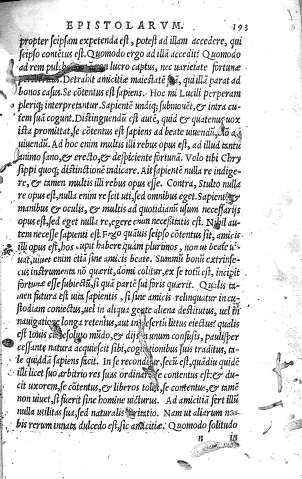 EPISTOLARVM. 193
propter seipsam expetenda est, potest ad illam accedere, qui
seipso contẽtus est. Quomodo ergo ad illã accedit? Quomodo
ad rem pulcher lucro captus, nec varietate fortunæ
Detrahit amicitiæ maiestatẽ suã, qui illã parat ad
bonos casus. Se cõtentus est sapiens. Hoc mi Lucili perperam
pleriq; interpretantur. Sapientẽ undiq; submouẽt, & intra cu-
tem suã cogunt. Distinguendũ est autẽ, quid & quatenus uox
ista promittat, se cõtentus est sapiens ad beate uiuendũ,
uiuendũ. Ad hoc enim multis illi rebus opus est, ad illud tantũ
animo sano, & erecto, & despiciente fortunã. Volo tibi Chry
sippi quoq; distinctionẽ indicare. Ait sapientẽ nulla re indige-
re, & tamen multis illi rebus opus esse. Contra, Stulto nulla
re opus est, nulla enim re scit uti, sed omnibus eget. Sapienti &
manibus & oculis, & multis ad quotidianũ usum necessarijs
opus est, sed eget nulla re, egere enim necessitatis est. Nihil au-
tem necesse sapienti est. Ergo quãuis seipso cõtentus sit, amicis
illi opus est, hos cupit habere quàm plurimos, non ut beate ui-
uat, uiuet enim etiã sine amicis beate. Summũ bonũ extrinse-
cus instrumenta nõ quærit, domi colitur, ex se totũ est, incipit
fortunæ esse subiectũ, si quã partẽ sui foris quærit. Qualis ta-
men futura est uita sapientis, si sine amicis relinquatur in cu-
stodiam coniectus, uel in aliqua gente aliena destitutus, uel in
nauigatione longa retentus, aut in desertũ littus eiectus? qualis
est Iouis cũ resoluto mũdo, & dijs in unum confusis, paulisper
cessante natura acquiescit sibi, cogitationibus suis traditus, ta-
le quiddã sapiens facit. In se reconditur, secũ est, quãdiu quidẽ
illi licet suo arbitrio res suas ordinare, se contentus est: & du-
cit uxorem, se cõtentus, & liberos tollit, se contentus, & tamẽ
non uiuet, si fuerit sine homine uicturus. Ad amicitiã fert illũ
nulla utilitas sua, sed naturalis irritatio. Nam ut aliarum no-
bis rerum innata dulcedo est, sic amicitiæ. Quomodo solitudo
n in